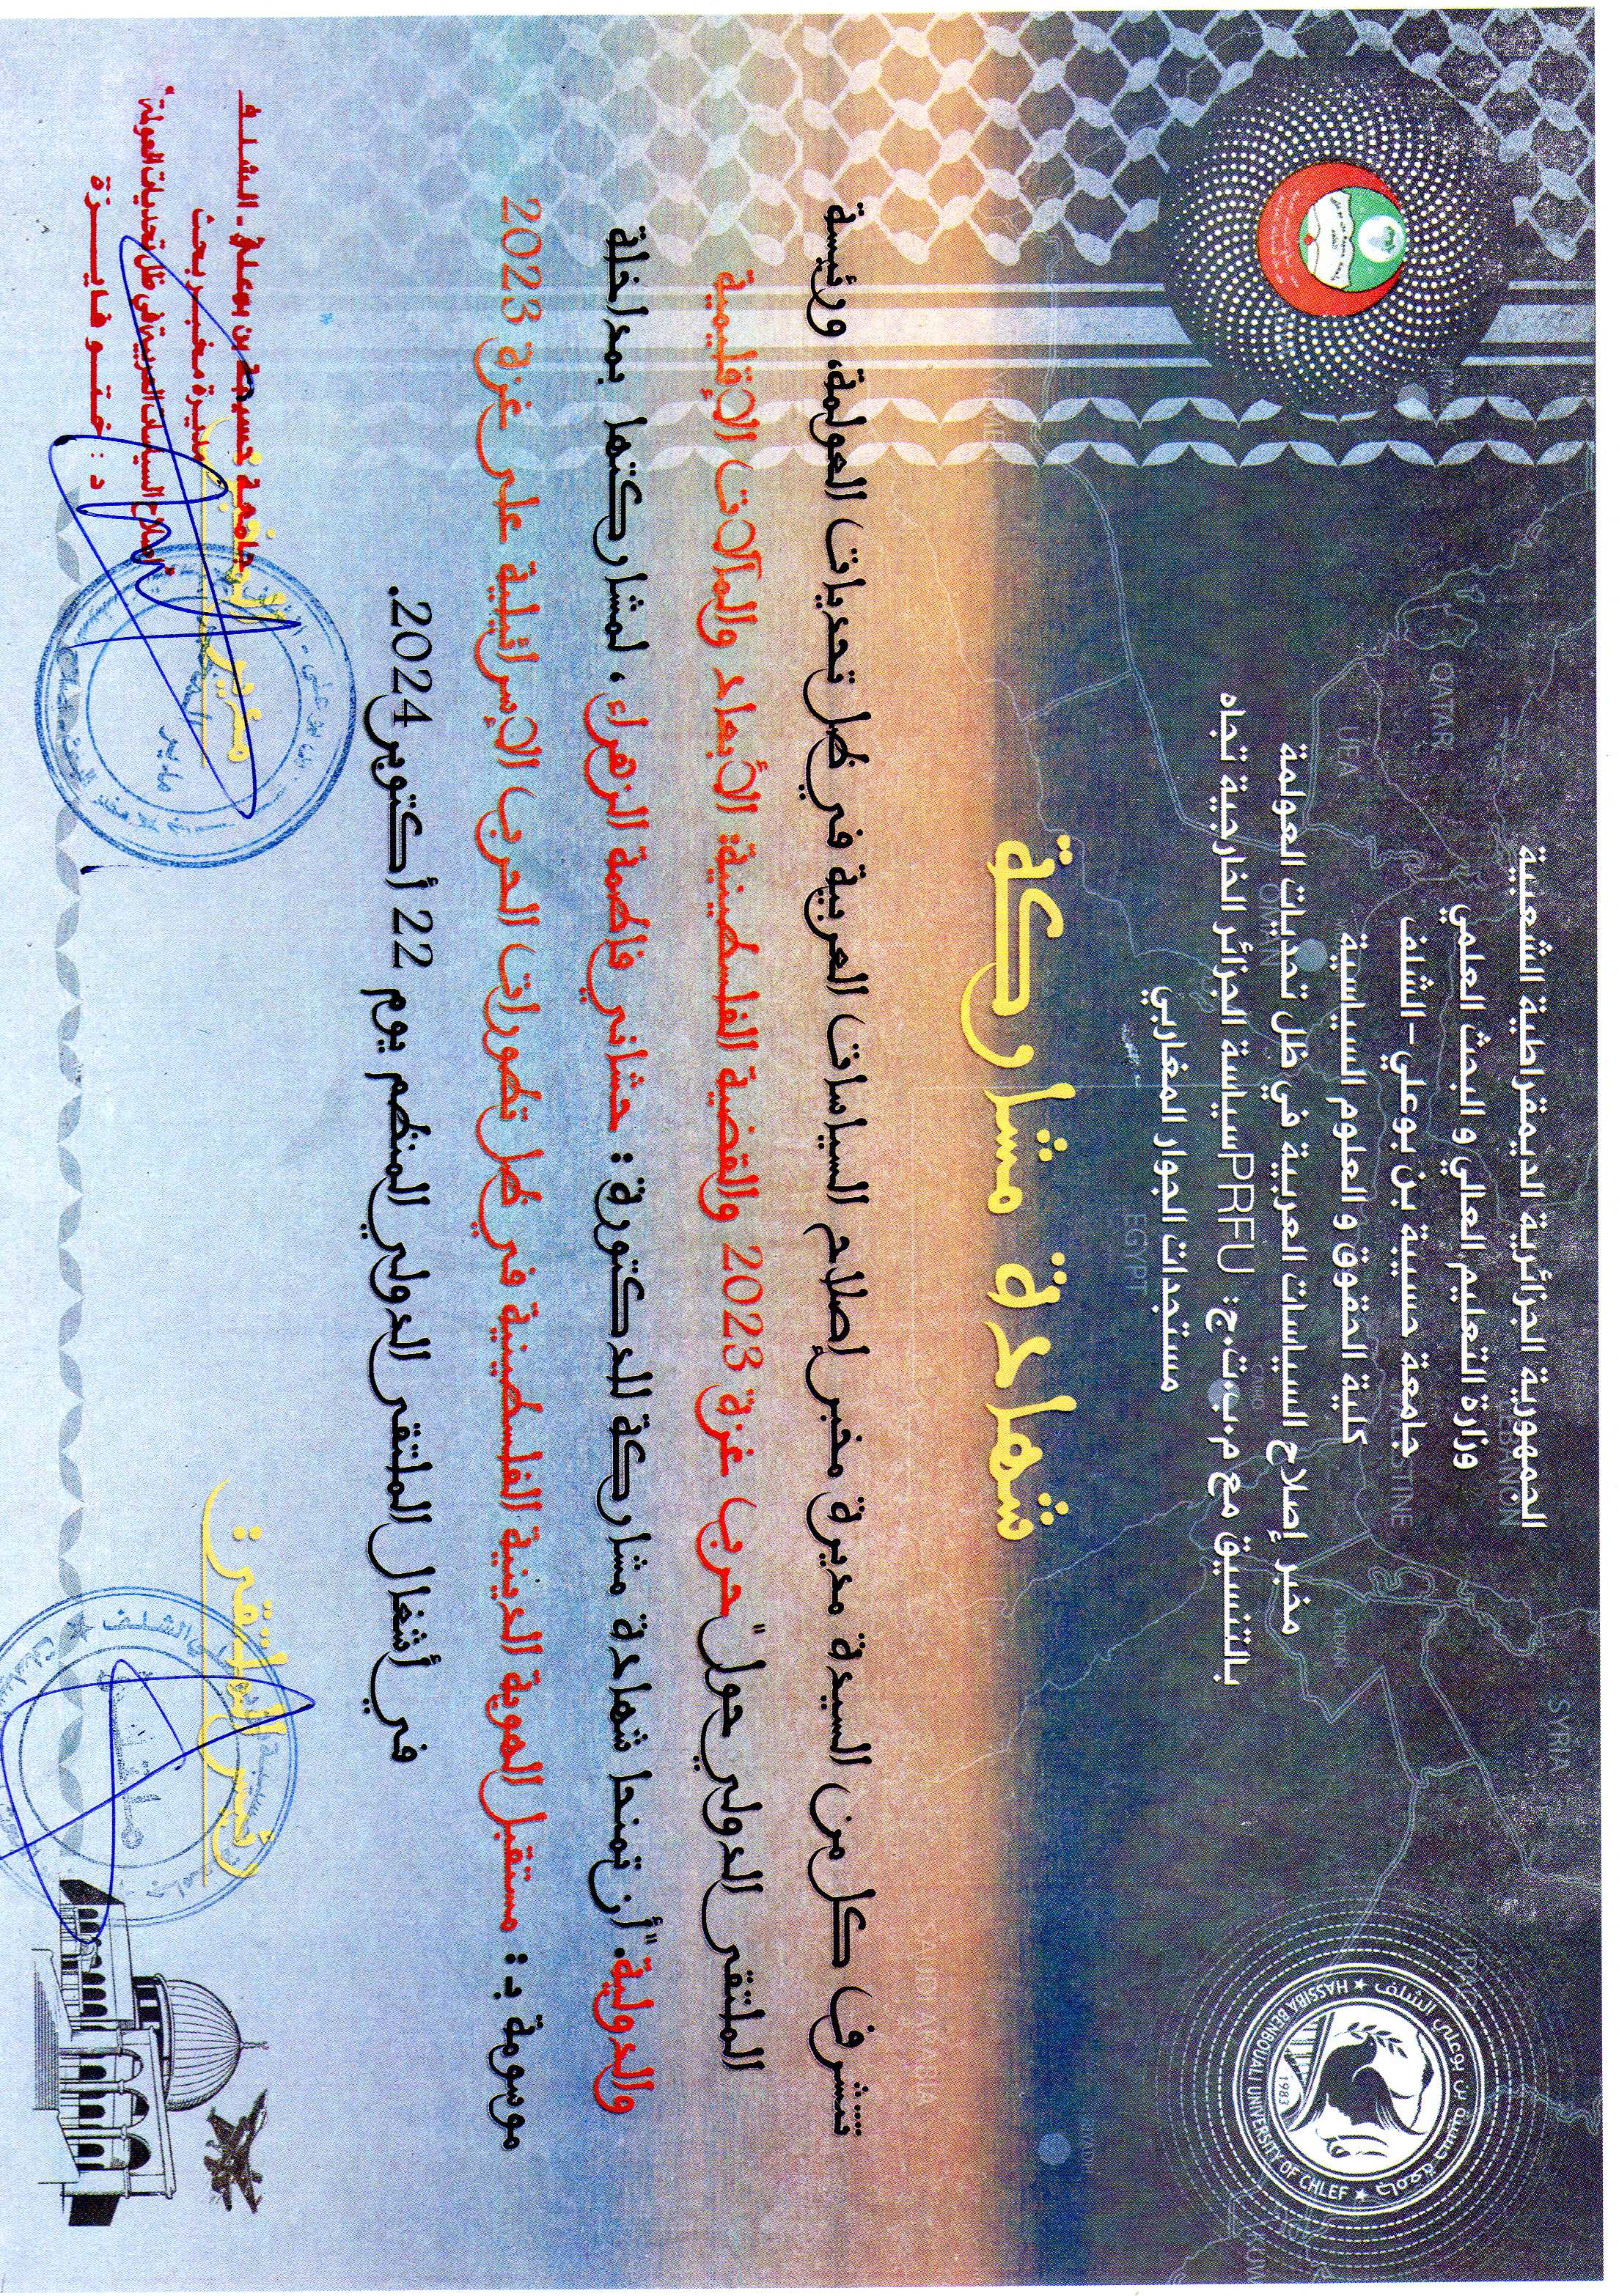 الجمهورية الجزائرية الديمقراطية الشعبية
وزارة التعليم العالي و البحث العلمي
جامعة حسيبة بن بوعلي-الشلف
كلية الحقوق و العلوم السياسية
مخبر إصلاح السياسات العربية في ظل تحديات العولمة
بالتنسيق مع م.ب.ت.ج: PRFUسياسة الجزائر الخارجية تجاه
مستجدات الجوار المغاربي
HASSIBA BENBOUALI UNIVERSITY OF CHLEF
جامعة حسيبة بن بوعلي الشلف
1983
SYRIA
LEBANON
PALESTINE
JORDAN
CAIRO
EGYPT
IRAQ
SAUDI ARABIA
RIYADH
OMAN
UEA
QATAR
شهادة مشاركة
تتشرف كل من السيدة مديرة مخبر إصلاح السياسات العربية في ظل تحديات العولمة، ورئيسة
الملتقى الدولي حول" حرب غزة 2023 والقضية الفلسطينية: الأبعاد والمآلات الإقليمية
والدولية."أن تمنحا شهادة مشاركة للدكتورة : حشاني فاطمة الزهراء، لمشاركتها بمداخلة
موسومة بـ: مستقبل الهوية الدينية الفلسطينية في ظل تطورات الحرب الإسرائيلية على غزة 2023
في أشغال الملتقى الدولي المنظم يوم 22 أكتوبر 2024.
رئيس الملتقى:
جامعة حسيبة بن بوعلي - الشلف
مديرة مخبر بحث
"إصلاح السياسات العربية في ظل تحديات العولمة"